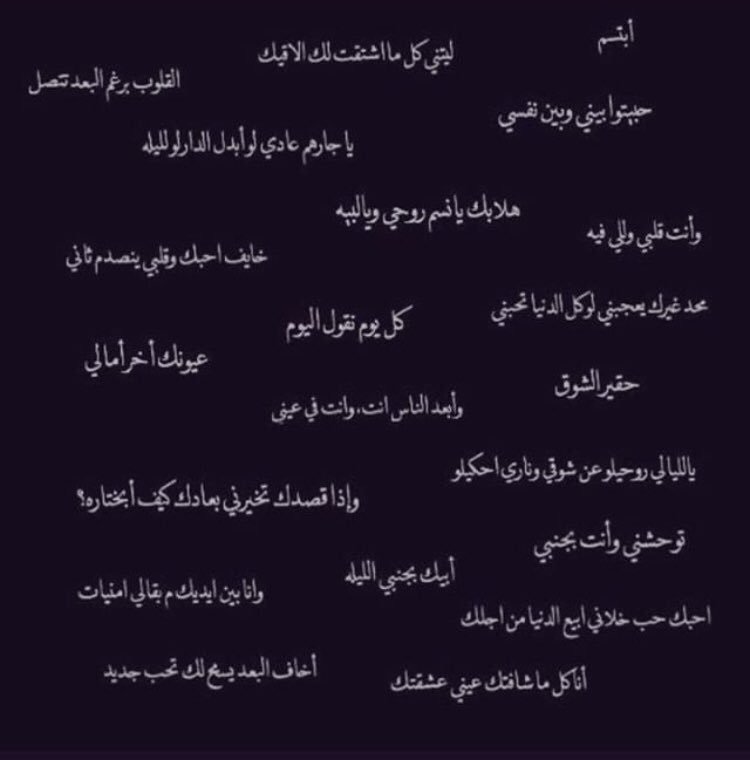 أبتسم
ليتني كل ما اشتقت لك الاقيك
القلوب برغم البعد تتصل
حبيتوا بيني وبين نفسي
يا جارهم عادي لو أبدل الدار لو لليله
هلا بك يا نسم روحي ويالبيه
وأنت قلبي وللي فيه
خايف احبك وقلبي ينصدم ثاني
محد غيرك يعجبني لو كل الدنيا تحبني
كل يوم نقول اليوم
عيونك أخر أمالي
حقير الشوق
وأبعد الناس انت، وانت في عيني
يالليالي روحيلو عن شوقي وناري احكيلو
وإذا قصدك تخيرني بعادك كيف أبختاره؟
توحشني وأنت بجنبي
أبيك بجنبي الليله
وانا بين ايديك م بقالي امنيات
احبك حب خلاني ابيع الدنيا من اجلك
أخاف البعد يسمح لك تحب جديد
أنا كل ما شافتك عيني عشقتك